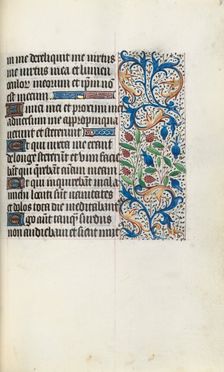 in me dereliquit me virtus
me virtus mea et lumen
culor meorum et ipm̄ no
est mecum
Amici mei et proximi mei
adversum me appropinqua
verunt et steterunt
Et qui iuxta me erant
de longe steterunt et vim facie
bāt qui querebāt aīam meam
Et qui inquirebāt mala
michi locuti sūt vanitates
et dolos tota die meditabant
Ego autē tanq̄ surdus
non audiebam et sicut mut